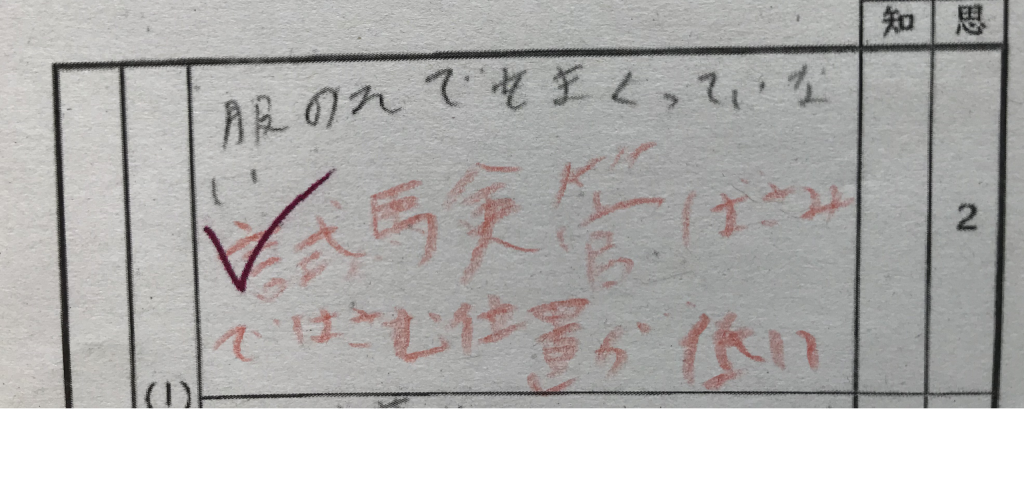 知 思
服のそでをまくっていな
い
試験管ばさみ
2
ではさむ位置が低い
(1)